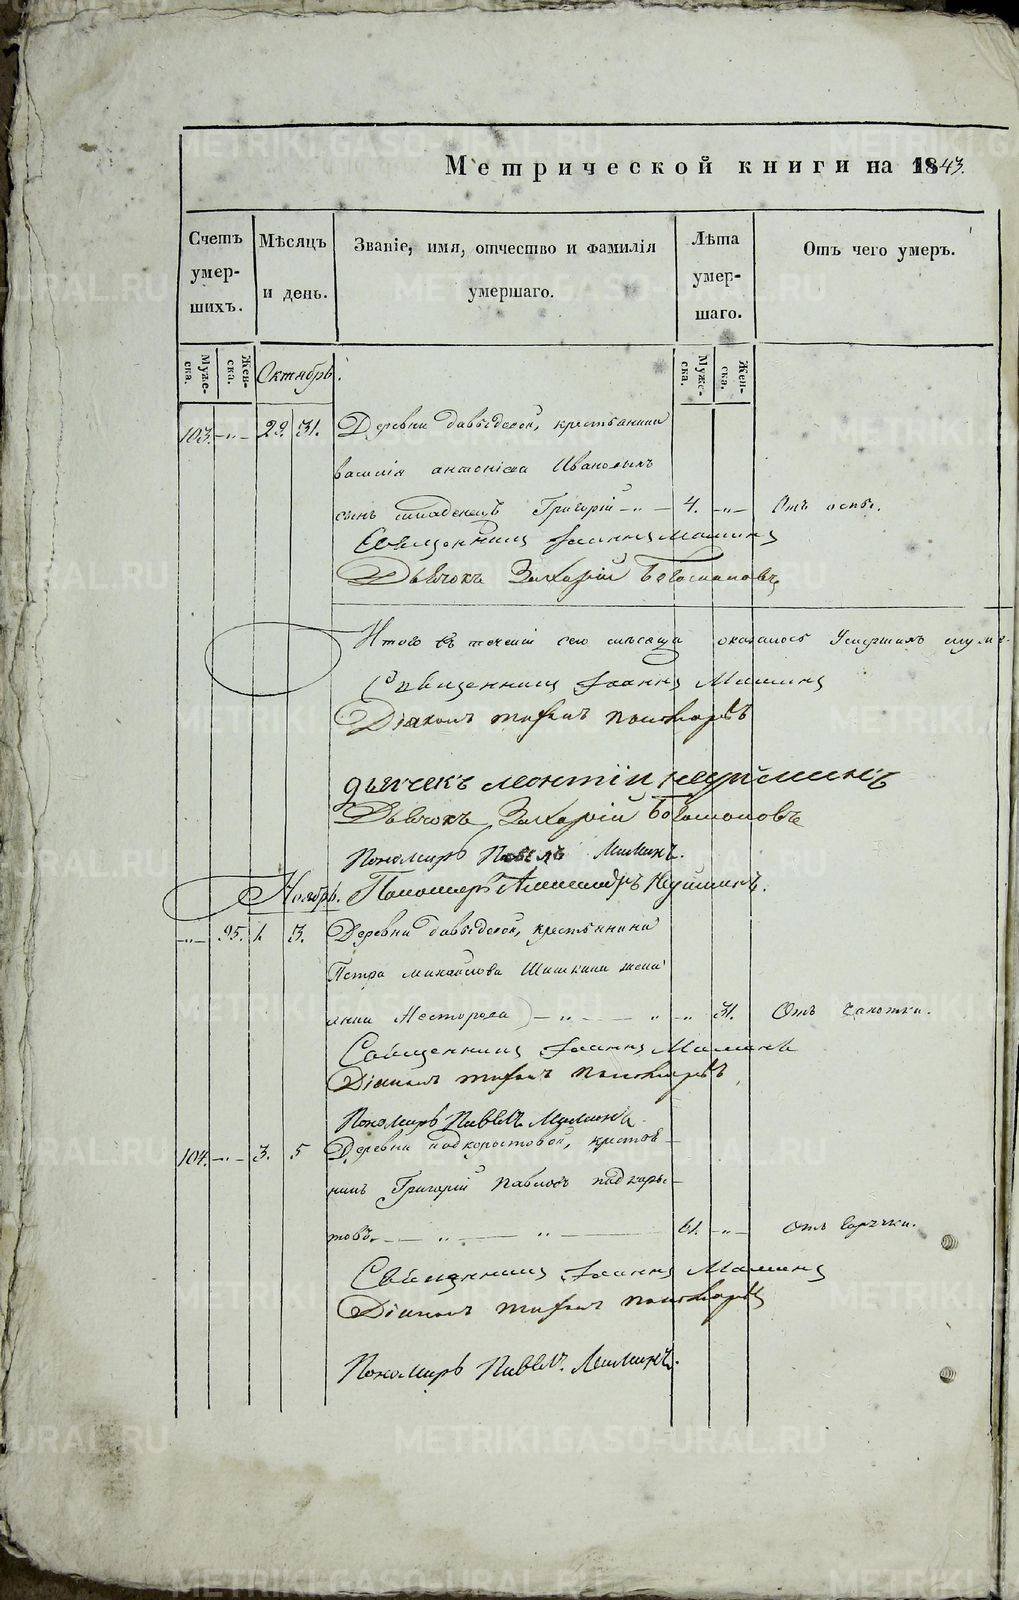 Метрической книги на 1843.
Счетъ умер-шихъ.
Мѣсяцъ и день.
Званіе, имя, отчество и фамилія умершаго.
Лѣта умер-шаго.
Отъ чего умеръ.
Муже-ска.
Жен-ска.
Октябрь.
Муже-ска.
Жен-ска.
103. -„- 29. 31. Деревни Давыдовой, крестьянина
василія антоніева Ивановыхъ
сынъ младенецъ Григорій -„- 4. -„- Отъ оспы.
Священникъ Іоаннъ Маминъ
Дьячокъ Захарій Богомоловъ
Итого въ теченіи сего мѣсяца оказалось Умершихъ
Священникъ Іоаннъ Маминъ
Діаконъ Пономаревъ
дьячекъ леонтій
Дьячокъ Захарій Богомоловъ
Пономарь Павелъ Маминъ.
Ноябрь. Пономарь Александръ
-„- 95. 1. 3. Деревни Давыдовой, крестьянина
Петра михайлова Шишкина жена
анна Несторова -„- „ -„- 31. Отъ чахотки.
Священникъ Іоаннъ Маминъ
Діаконъ Пономаревъ
Пономарь Павелъ Маминъ.
104. -„- 3. 5 Деревни подкорытовой, крестья-
нинъ Григорій Павловъ подкоры-
товъ. - „ - „ - 61. -„- Отъ горячки.
Священникъ Іоаннъ Маминъ
Діаконъ Пономаревъ
Пономарь Павелъ Маминъ.
METRIKI.GASO-URAL.RU